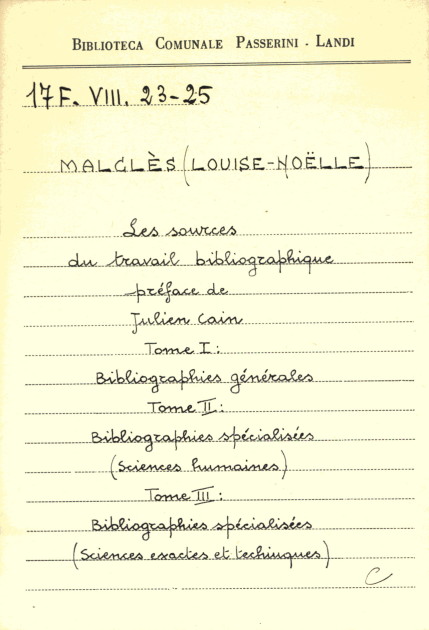 BIBLIOTECA COMUNALE PASSERINI - LANDI
17F. VIII. 23-25
MALCLÈS (LOUISE-NOËLLE)
Les sources
du travail bibliographique
préface de
Julien Cain
Tome I:
Bibliographies générales
Tome II:
Bibliographies spécialisées
(Sciences humaines)
Tome III:
Bibliographies spécialisées
(Sciences exactes et techinques)
C